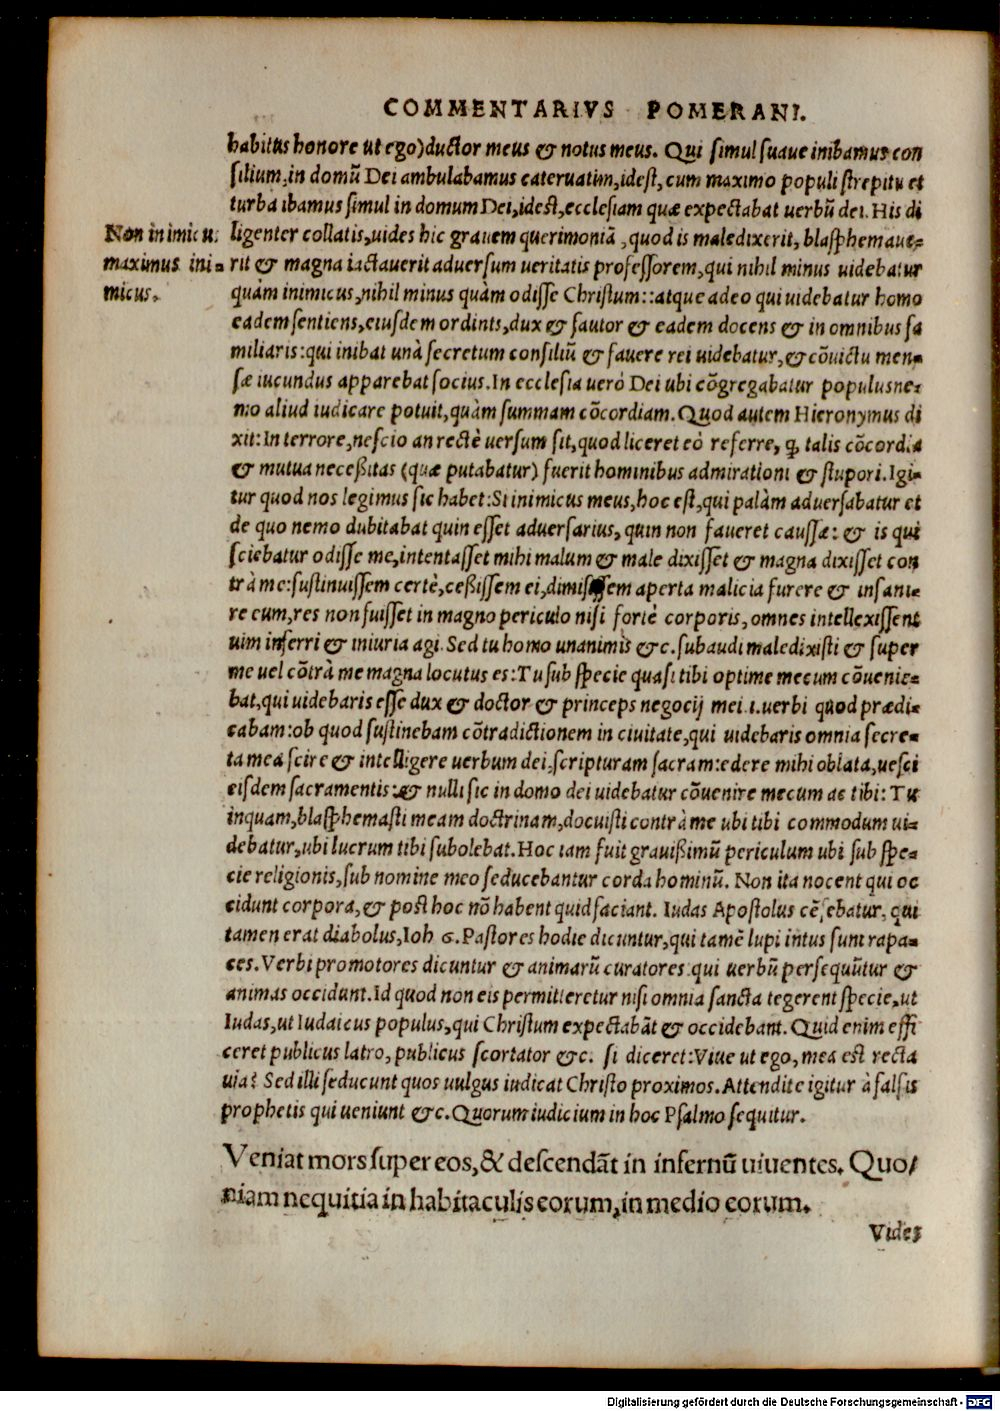 COMMENTARIVS POMERANI.
habitus honore ut ego) ductor meus & notus meus. Qui simul suaue inibamus con
silium, in domũ Dei ambulabamus cateruatim, idest, cum maximo populi strepitu et
turba ibamus simul in domum Dei, idest, ecclesiam quæ expectabat uerbũ dei. His di
Non inimicu:
maximus ini-
micus.
ligenter collatis, uides hic grauem querimoniã, quod is maledixerit, blasphemaue-
rit & magna iactauerit aduersum ueritatis professorem, qui nihil minus uidebatur
quàm inimicus, nihil minus quàm odisse Christum:: atque adeo qui uidebatur homo
eadem sentiens, eiusdem ordinis, dux & fautor & eadem docens & in omnibus fa
miliaris: qui inibat unà secretum consiliũ & fauere rei uidebatur, & cõuictu men-
sæ iucundus apparebat socius. In ecclesia uerò Dei ubi cõgregabatur populus ne-
mo aliud iudicare potuit, quàm summam cõcordiam. Quod autem Hieronymus di
xit: In terrore, nescio an rectè uersum sit, quod liceret eò referre, ꝙ talis cõcordia
& mutua neceßitas (quæ putabatur) fuerit hominibus admirationi & stupori. Igi-
tur quod nos legimus sic habet: Si inimicus meus, hoc est, qui palàm aduersabatur et
de quo nemo dubitabat quin esset aduersarius, quin non faueret caussæ: & is qui
sciebatur odisse me, intentasset mihi malum & male dixisset & magna dixisset con
trà me: sustinuissem certè, ceßissem ei, dimisissem aperta malicia furere & insani-
re eum, res non fuisset in magno periculo nisi fortè corporis, omnes intellexissent
uim inferri & iniuria agi. Sed tu homo unanimis &c. subaudi maledixisti & super
me uel cõtrà me magna locutus es: Tu sub specie quasi tibi optime mecum cõuenie-
bat, qui uidebaris esse dux & doctor & princeps negocij mei .i. uerbi quod prædi-
cabam: ob quod sustinebam cõtradictionem in ciuitate, qui uidebaris omnia secre-
ta mea scire & intelligere uerbum dei, scripturam sacram: edere mihi oblata, uesci
eisdem sacramentis: & nulli sic in domo dei uidebatur cõuenire mecum ac tibi: Tu
inquam, blasphemasti meam doctrinam, docuisti contrà me ubi tibi commodum ui-
debatur, ubi lucrum tibi subolebat. Hoc iam fuit grauißimũ periculum ubi sub spe-
cie religionis, sub nomine meo seducebantur corda hominũ. Non ita nocent qui oc
cidunt corpora, & post hoc nõ habent quid faciant. Iudas Apostolus cẽsebatur, qui
tamen erat diabolus, Ioh 6. Pastores hodie dicuntur, qui tamẽ lupi intus sunt rapa-
ces. Verbi promotores dicuntur & animarũ curatores qui uerbũ persequũtur &
animas occidunt. Id quod non eis permitteretur nisi omnia sancta tegerent specie, ut
Iudas, ut Iudaicus populus, qui Christum expectabãt & occidebant. Quid enim effi
ceret publicus latro, publicus scortator &c. si diceret: Viue ut ego, mea est recta
uia? Sed illi seducunt quos uulgus iudicat Christo proximos. Attendite igitur à falsis
prophetis qui ueniunt &c. Quorum iudicium in hoc Psalmo sequitur.
Veniat mors super eos, & descendãt in infernũ uiuentes. Quo/
niam nequitia in habitaculis eorum, in medio eorum.
Vides
Digitalisierung gefördert durch die Deutsche Forschungsgemeinschaft - DFG